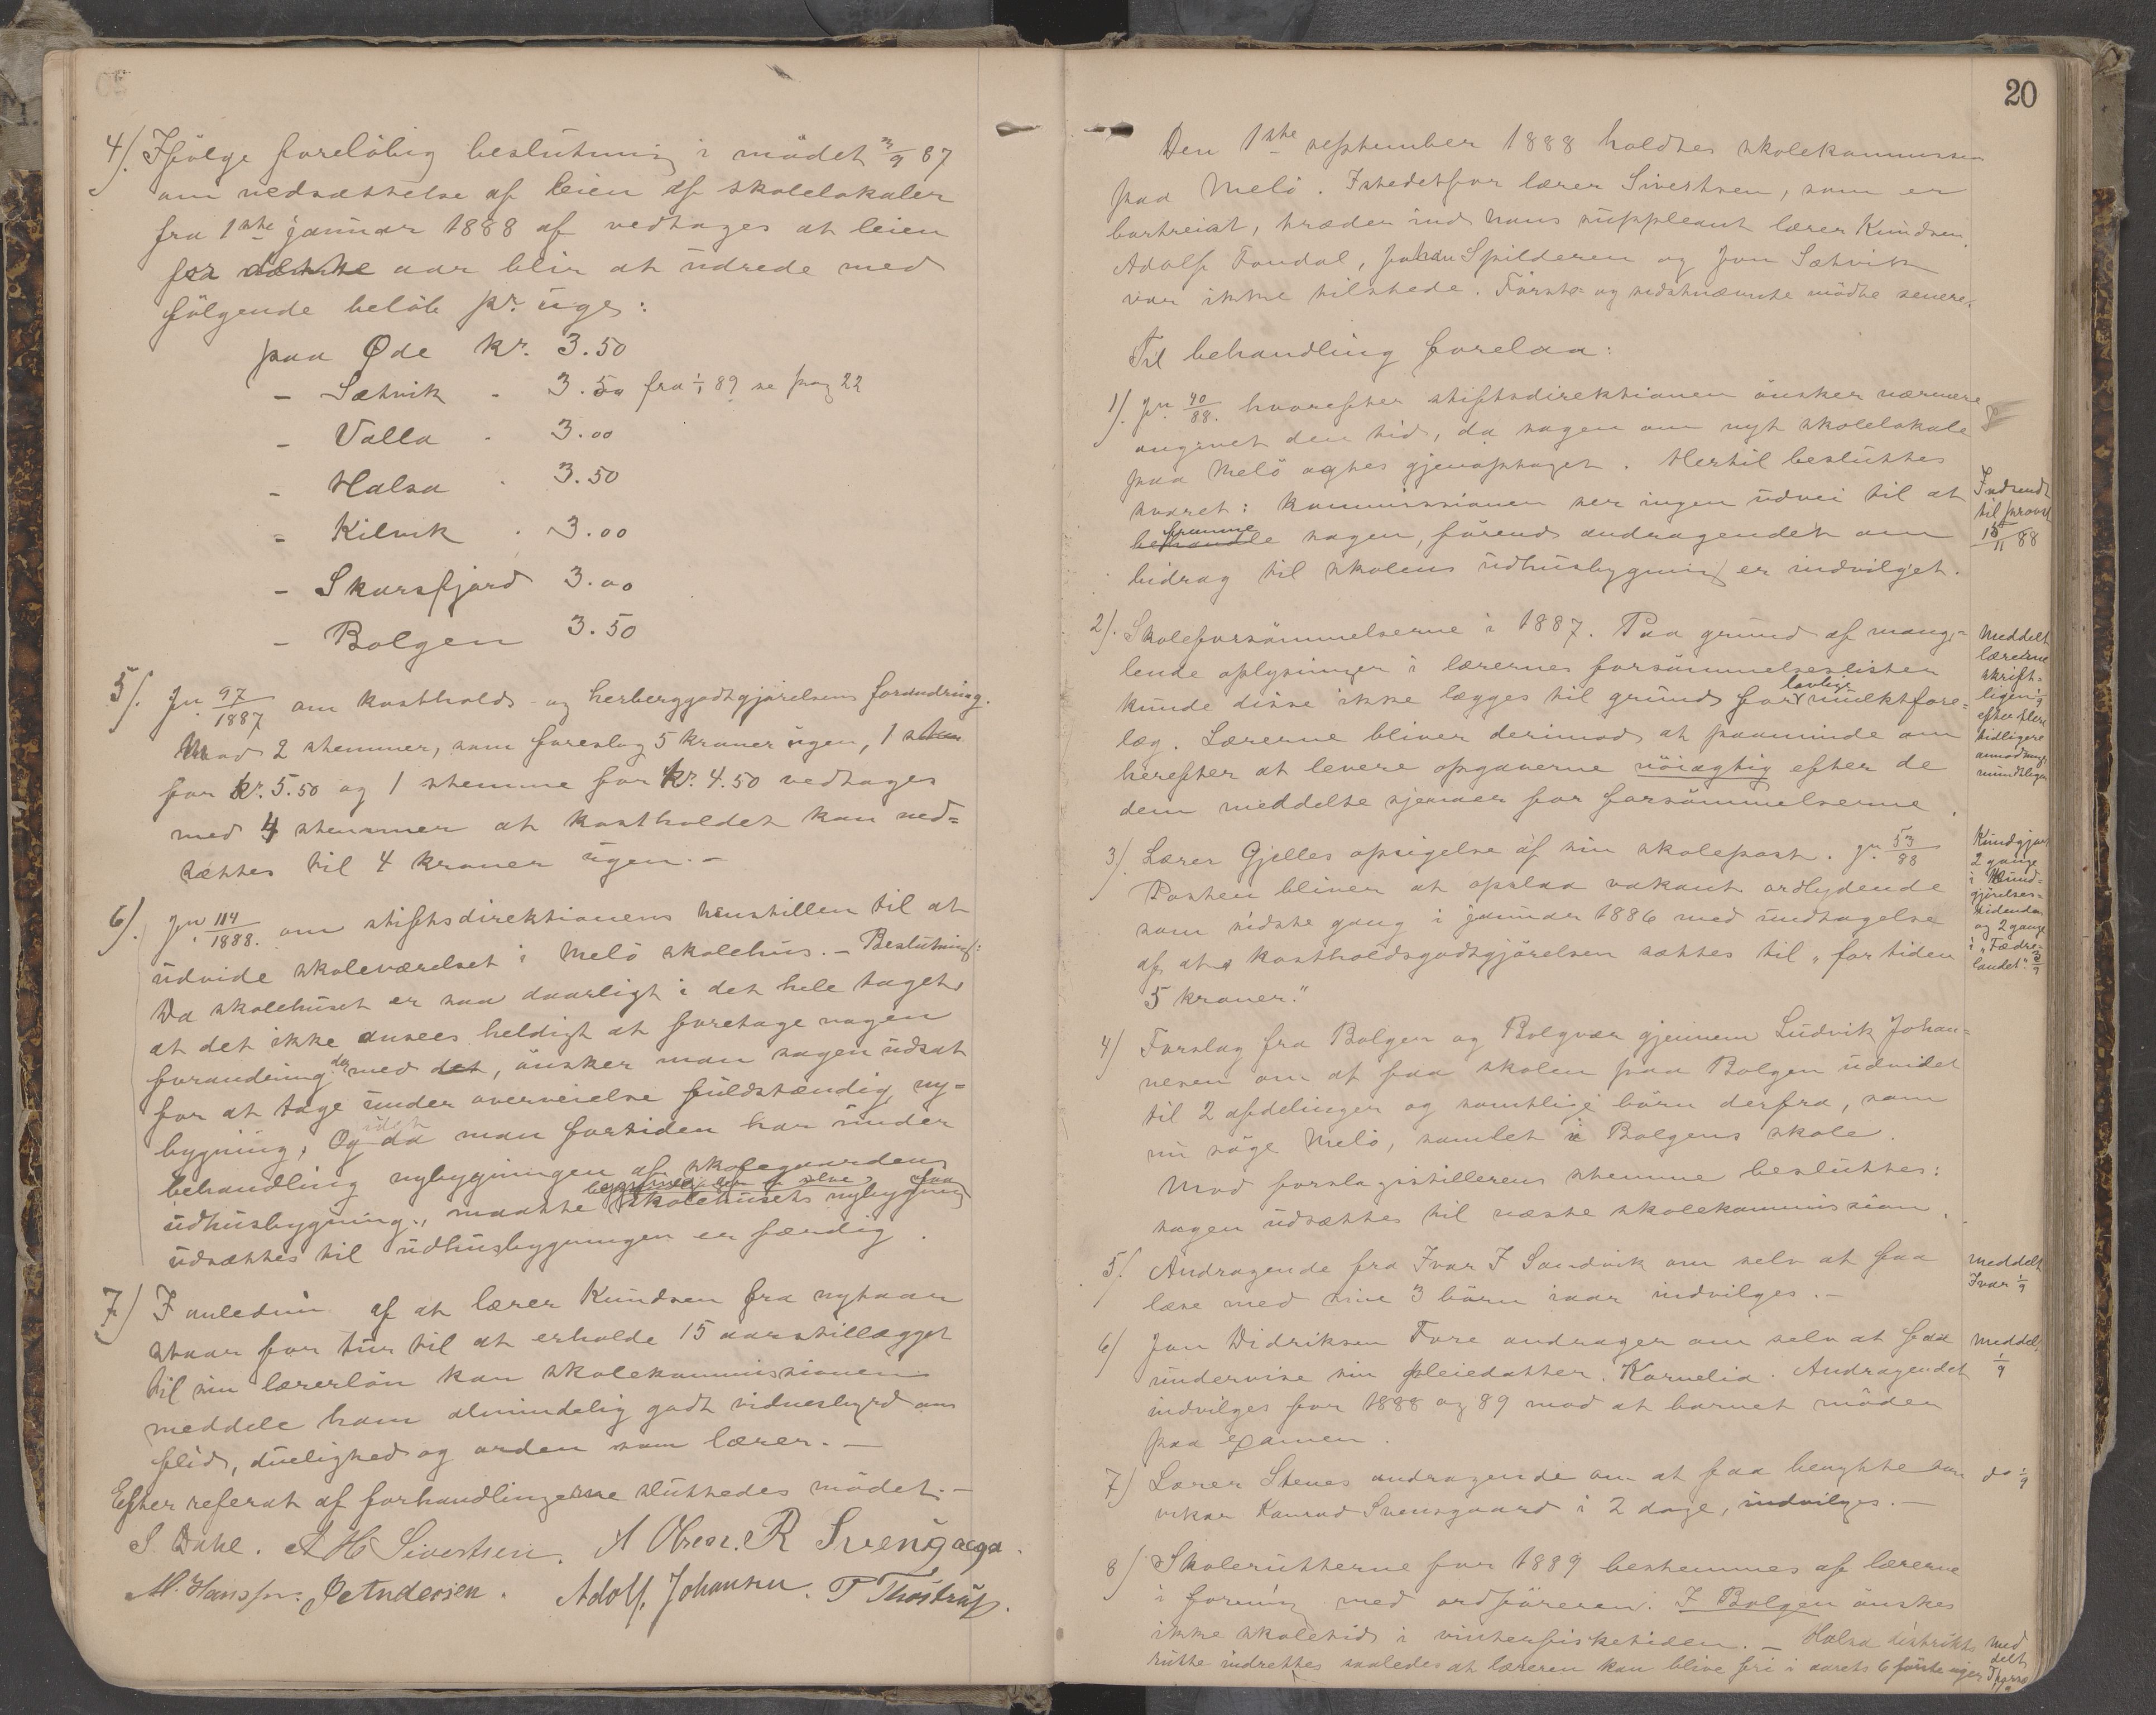 4). Ifölge forelöbig beslutning i mödet 3/9 87
om nedsættelse af leien af skolelokaler
fra 1ste januar 1888 af vedtages at leien
for dette aar blir at udrede med
fölgende belöb pr. uge:
paa Øde kr. 3.50
- Sætvik - 3.50 fra 1/1 89 se pag 22
- Valla - 3.00
- Halsa - 3.50
- Kilvik - 3.00
- Skarsfjord 3.00
- Bolgen 3.50
5). Jn. 97/1887 om kosthold- og herberggodtgjörelsens forandring.
Mod 2 stemmer, som foreslog 5 kroner ugen, 1 stem
for kr. 5.50 og 1 stemme for kr. 4.50 vedtages
med 4 stemmer at kostholdet kan ned=
sættes til 4 kroner ugen. -
6). Jn. 114/1888. om stiftsdirektionens henstillen til at
udvide skoleværelset i Melö skolehus. - Beslutning:
Da skolehuset er saa daarligt i det hele taget,
at det ikke ansees heldigt at foretage nogen
forandring dermed det, önsker man sagen udsat
for at tage under overveielse fuldstændig ny=
bygning, Og da man fortiden har under
behandling nybygningen af skolegaardens
udhusbygning, maatte skolehusets nybygning
udsættes til udhusbygningen er færdig.
7) I anledning af at lærer Knudsen fra nytaar
staar for tur til at erholde 15 aarstillægget
til sin lærerlön kan skolekommissionen
meddele ham almindelig godt vidnesbyrd om
flid, duelighed og orden som lærer. -
Efter referat af forhandlingerne sluttedes mödet. -
S. Dahl. A H Sivertsen. A Olsen. R Svensgaard.
M. Hansen. P Andersen. Adolf Johansen. T Thostrup.
20
Den 1ste september 1888 holdtes skolekommission
paa Melö. Istedetfor lærer Sivertsen, som er
bortreist, træder ind hans suppleant lærer Knudsen.
Adolf Fondal, Johan Spilderen og Jon Sætvik
var ikke tilstede. Först- og sidstnævnte mödte senere.
Til behandling forelaa:
1). Jn. 40/88. hvorefter stiftsdirektionen önsker nærmere
angivet den tid, da sagen om nyt skolelokale
paa Melö agtes gjenoptaget. Hertil besluttes
svaret: Kommissionen ser ingen udvei til at
fremme
behandle sagen, förend andragendet om
bidrag til skolens udhusbygning er indvilget.
Indsendt
til provst
15/11 88
2). Skoleforsömmelserne i 1887. Paa grund af mang=
lende oplysninger i lærernes forsömmelseslister
kunde disse ikke lægges til grund for lovlige mulktfore=
læg. Lærerne bliver derimod at paaminde om
herefter at levere opgaverne nöiagtig efter de
dem meddelte sjemaer for forsömmelserne.
Meddelt
lærerne
skrift=
ligen 1/9
efter flere
tidligere
anmodninger
mundtligen
3). Lærer Gjelles opsigelse af sin skolepost. Jn. 53/88
Posten bliver at opslaa vakant ordlydende
som sidste gang i januar 1886 med undtagelse
af at kostholdsgodtgjörelsen sættes til "for tiden
5 kroner."
Kundgjort
2 gange
i Kund=
gjörelses=
tidende
og 2 gange
i "Fædre=
landet" 3/9
4) Forslag fra Bolgen og Bolgvær gjennem Ludvik Johan=
nesen om at faa skolen paa Bolgen udvidet
til 2 afdelinger og samtlige börn derfra, som
nu söge Melö, samlet i Bolgens skole.
Mod forslagsstillerens stemme besluttes:
sagen udsættes til næste skolekommission.
5). Andragende fra Ivar J Sandvik om selv at faa
læse med sine 3 börn iaar indvilges. -
Meddelt
Ivar 1/9
6) Jon Didriksen Fore andrager om selv at faa
undervise sin pleiedatter Kornelia. Andragendet
indvilges for 1888 og 89 mod at barnet möder
paa examen.
Meddelt
1/9
7) Lærer Stenes andragende om at faa benytte som
vikar Konrad Svensgaard i 2 dage, indvilges. -
do 1/9
8) Skoleruterne for 1889 bestemmes af lærerne
i forening med ordföreren. I Bolgen önskes
ikke skoletid i vinterfisketiden. - Halsa distrikts
rutte indrettes saaledes at læreren kan blive fri i aarets 6 förste uger
Med
delt